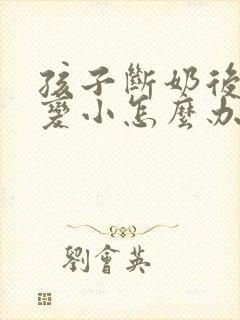 孩子斷奶後
變小怎麼办
劉會英